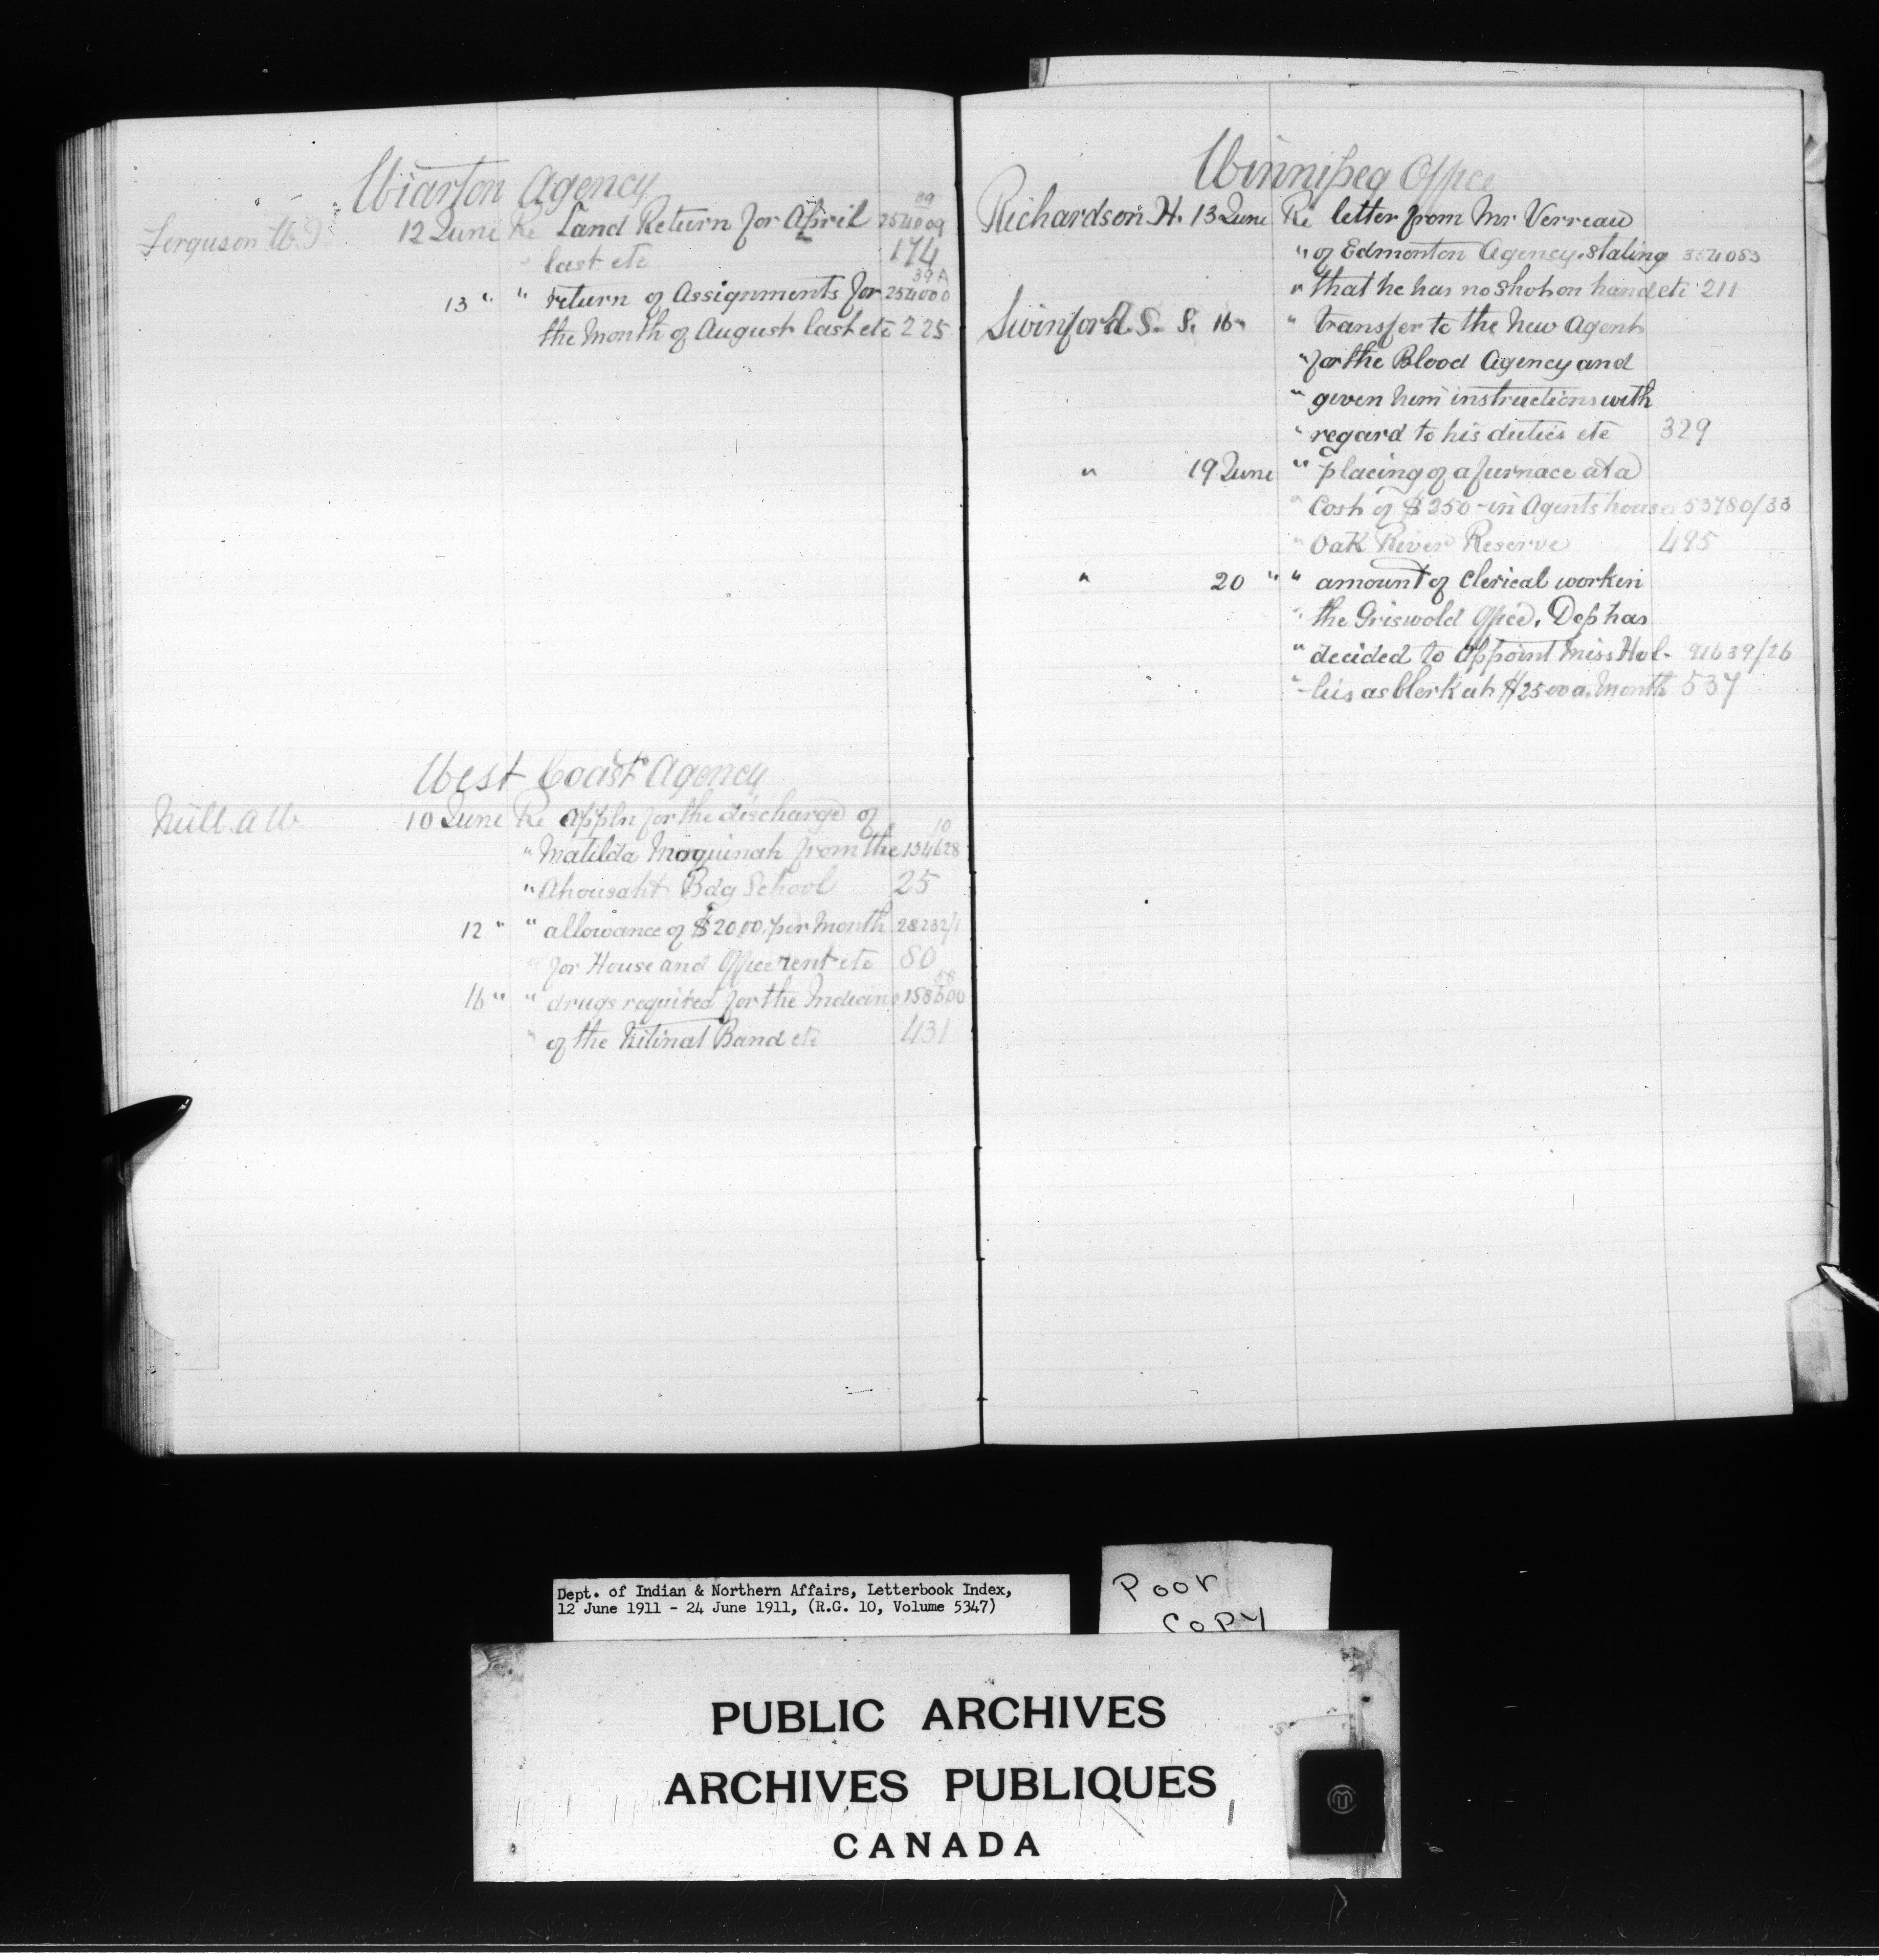 Wiarton Agency
39
Ferguson W. I. 12 June Re Land Return for April 254009
" last etc 174
39A
13 " " return of Assignments for 254000
the Month of August last etc 225
West Coast Agency
Neill. A W. 10 June Re Appln for the discharge of
10
" Matilda Moquinah from the 134628
" Ahousaht Bdg School 25
12 " " allowance of $20.00. per Month 28232/1
" for House and Office rent etc 80
58
16 " " drugs required for the Indians 158600
" of the Nitinat Band etc 431
Winnipeg Office
Richardson. H. 13 June Re letter from Mr Verreau
" of Edmonton Agency. stating 354053
" that he has no shot on hand etc 211
Swinford. S. S. 16 " " transfer to the New Agent
" for the Blood Agency and
" given him instructions with
" regard to his duties etc 329
" 19 June " placing of a furnace at a
" Cost of $250 - in Agents house 53780/33
" Oak River Reserve 495
" 20 " " amount of Clerical work in
" the Griswold Office. Dep has
" decided to Appoint Miss Hol- 91639/26
" -lis as Clerk at $25 00 a. Month 537
Dept. of Indian & Northern Affairs, Letterbook Index,
12 June 1911 - 24 June 1911, (R.G. 10, Volume 5347)
Poor
COPY
PUBLIC ARCHIVES
ARCHIVES PUBLIQUES
CANADA